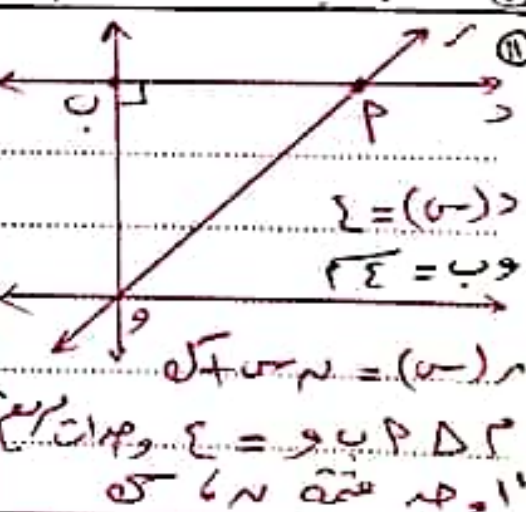 ١١
ر
ب
م
د
د(س) = ٤
وب = ٤ سم
و
ر(س) = ن س + ك
م Δ م ب و = ٤ وحدات مربعة
أوجد قيمة ن ، ك